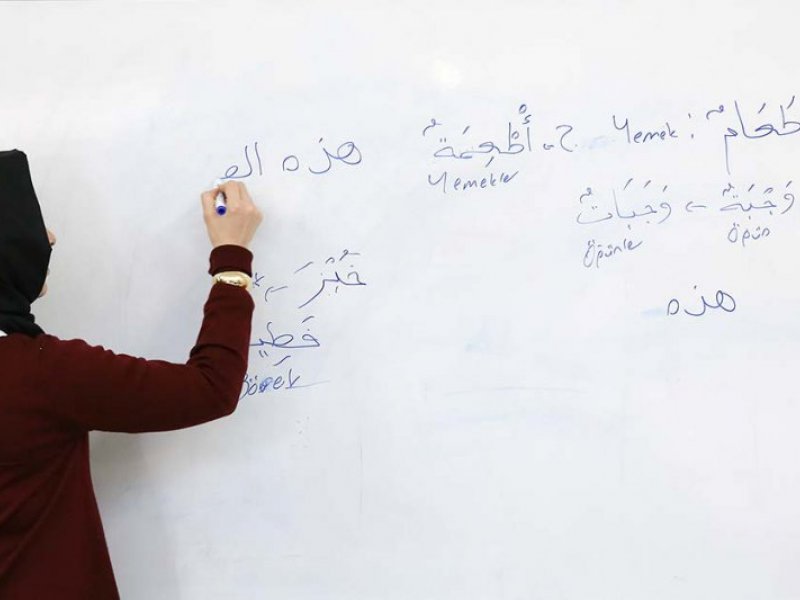 طَعَامٌ : Yemek ج- أَطْعِمَةٌ
Yemekler
وَجْبَةٌ - وَجَبَاتٌ
öğün öğünler
هذه
هذه الم
خُبْزَ -
فَطِير
Börek